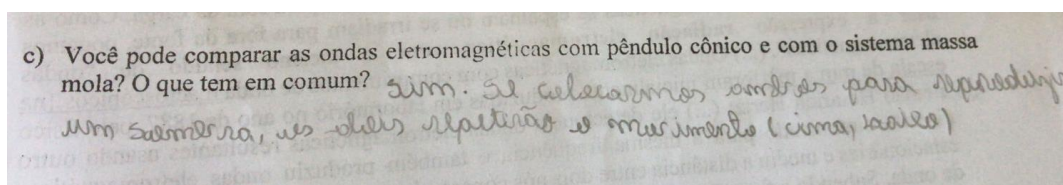 c) Você pode comparar as ondas eletromagnéticas com pêndulo cônico e com o sistema massa
mola? O que tem em comum? sim. Se colocarmos ambos para reproduzir
um sombra, os dois repetirão o movimento (cima, baixo)